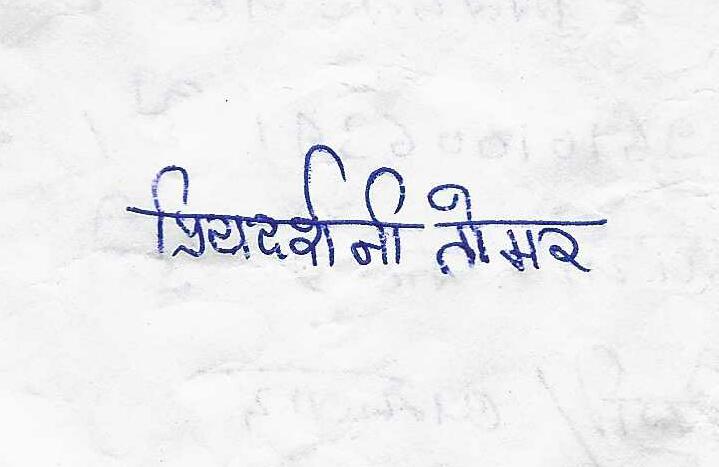 प्रियदर्शनी तोमर